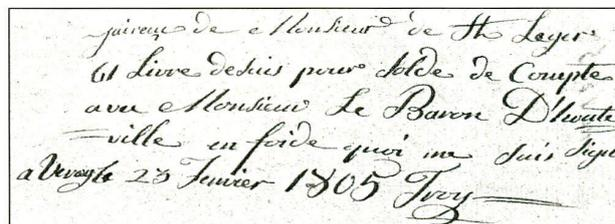 de Monsieur de St Leger
61 Livre desuis pour Solde de Compte
avec Monsieur Le Baron D'houte
ville en foide quoi me suis signé
a 23 Janvier 1805 Troy